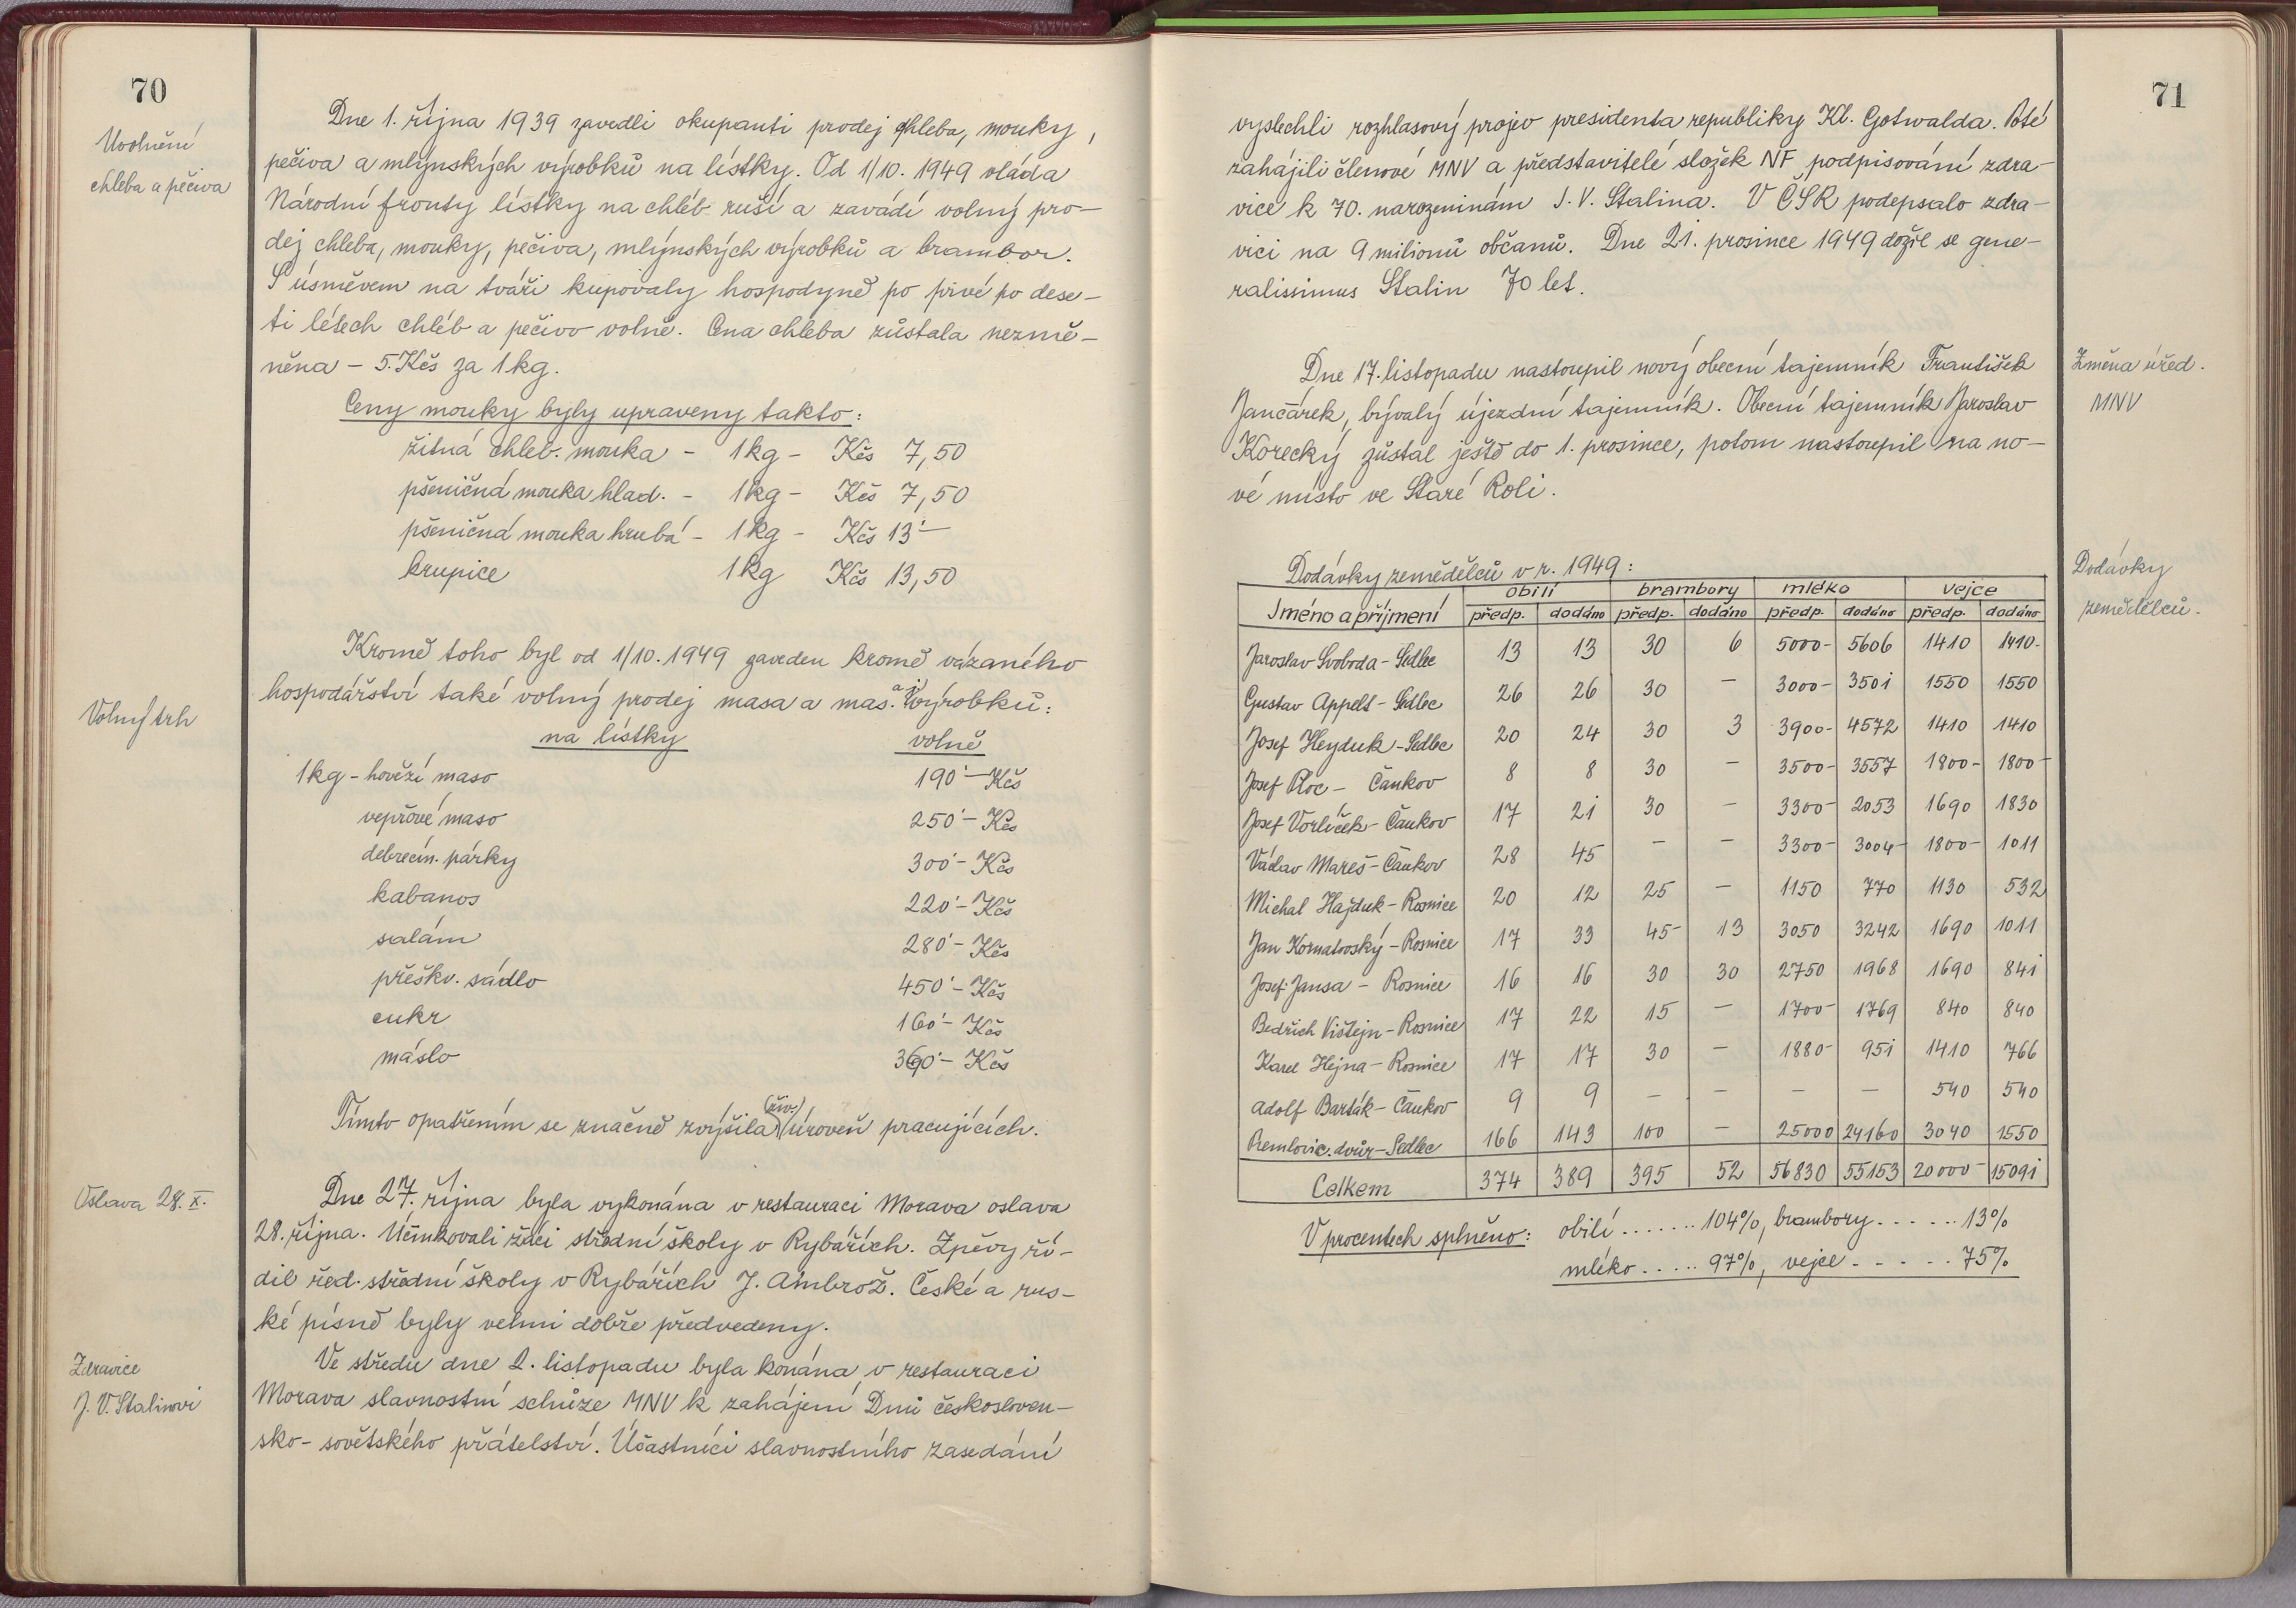 70
Uvolnění
chleba a pečiva
Dne 1. října 1939 zavedli okupanti prodej chleba, mouky,
pečiva a mlýnských výrobků na lístky. Od 1/10. 1949 vláda
Národní fronty lístky na chléb ruší a zavádí volný pro-
dej chleba, mouky, pečiva, mlýnských výrobků a brambor.
S úsměvem na tváři kupovaly hospodyně po prvé po dese-
ti létech chléb a pečivo volně. Cena chleba zůstala nezmě-
něna - 5.Kčs za 1kg.
Ceny mouky byly upraveny takto:
žitná chleb. mouka - 1kg - Kčs 7,50
pšeničná mouka hlad. - 1kg - Kčs 7,50
pšeničná mouka hrubá - 1kg - Kčs 13'-
krupice 1kg Kčs 13,50
Volný trh
Kromě toho byl od 1/10. 1949 zaveden kromě vázaného
hospodářství také volný prodej masa a mas. a j. výrobků:
na lístky volně
1kg - hovězí maso 190'- Kčs
vepřové maso 250'- Kčs
debrecín. párky 300'- Kčs
kabanos 220'- Kčs
salám 280'- Kčs
přeškv. sádlo 450'- Kčs
cukr 160'- Kčs
máslo 360'- Kčs
Tímto opatřením se značně zvýšila (živ.) úroveň pracujících.
Oslava 28. X.
Dne 27. října byla vykonána v restauraci Morava oslava
28. října. Účinkovali žáci střední školy v Rybářích. Zpěvy ří-
dil řed. střední školy v Rybářích J. Ambrož. České a rus-
ké písně byly velmi dobře předvedeny.
Zdravice
J. V. Stalinovi
Ve středu dne 2. listopadu byla konána v restauraci
Morava slavnostní schůze MNV k zahájení Dnů českosloven-
sko-sovětského přátelství. Účastníci slavnostního zasedání
71
vyslechli rozhlasový projev presidenta republiky Kl. Gotwalda. Poté
zahájili členové MNV a představitelé složek NF podpisování zdra-
vice k 70. narozeninám J. V. Stalina. V ČSR podepsalo zdra-
vici na 9 milionů občanů. Dne 21. prosince 1949 dožil se gene-
ralissimus Stalin 70 let.
Změna úřed.
MNV
Dne 17. listopadu nastoupil nový obecní tajemník František
Jančárek, bývalý újezdní tajemník. Obecní tajemník Jaroslav
Korecký zůstal ještě do 1. prosince, potom nastoupil na no-
vé místo ve Staré Roli.
Dodávky
zemědělců.
Dodávky zemědělců v r. 1949:
Jméno a příjmení obilí brambory mléko vejce
předp. dodáno předp. dodáno předp. dodáno předp. dodáno
Jaroslav Svoboda - Sedlec 13 13 30 6 5000- 5606 1410 1410-
Gustav Appelt - Sedlec 26 26 30 - 3000- 3501 1550 1550
Josef Heyduk - Sedlec 20 24 30 3 3900- 4572 1410 1410
Josef Ploc - Čankov 8 8 30 - 3500- 3557 1800- 1800-
Josef Vorlíček - Čankov 17 21 30 - 3300- 2053 1690 1830
Václav Mareš - Čankov 28 45 - - 3300- 3004- 1800- 1011
Michal Hajduk - Rosnice 20 12 25 - 1150 770 1130 532
Jan Kornatovský - Rosnice 17 33 45- 13 3050 3242 1690 1011
Josef Jansa - Rosnice 16 16 30 30 2750 1968 1690 841
Bedřich Vištejn - Rosnice 17 22 15 - 1700- 1769 840 840
Karel Hejna - Rosnice 17 17 30 - 1880- 951 1410 766
Adolf Barták - Čankov 9 9 - - - - 540 540
dvůr - Sedlec 166 143 100 - 25000 24160 3040 1550
Celkem 374 389 395 52 56830 55153 20000- 15091
V procentech splněno: obilí ...... 104%, brambory ...... 13%
mléko ..... 97%, vejce ...... 75%